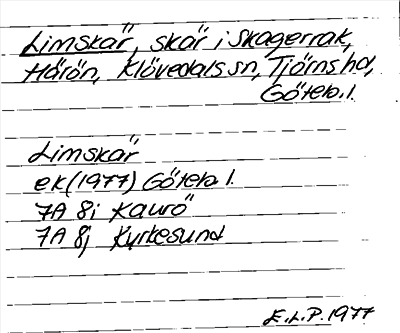 Limskär, skär i Skagerrak,
Härön, Klövedals sn, Tjörns hd,
Göteb. l.
Limskär
ek (1977) Göteb. l.
7A 8i Kaurö
7A 8j Kyrkesund
E.L.P. 1977